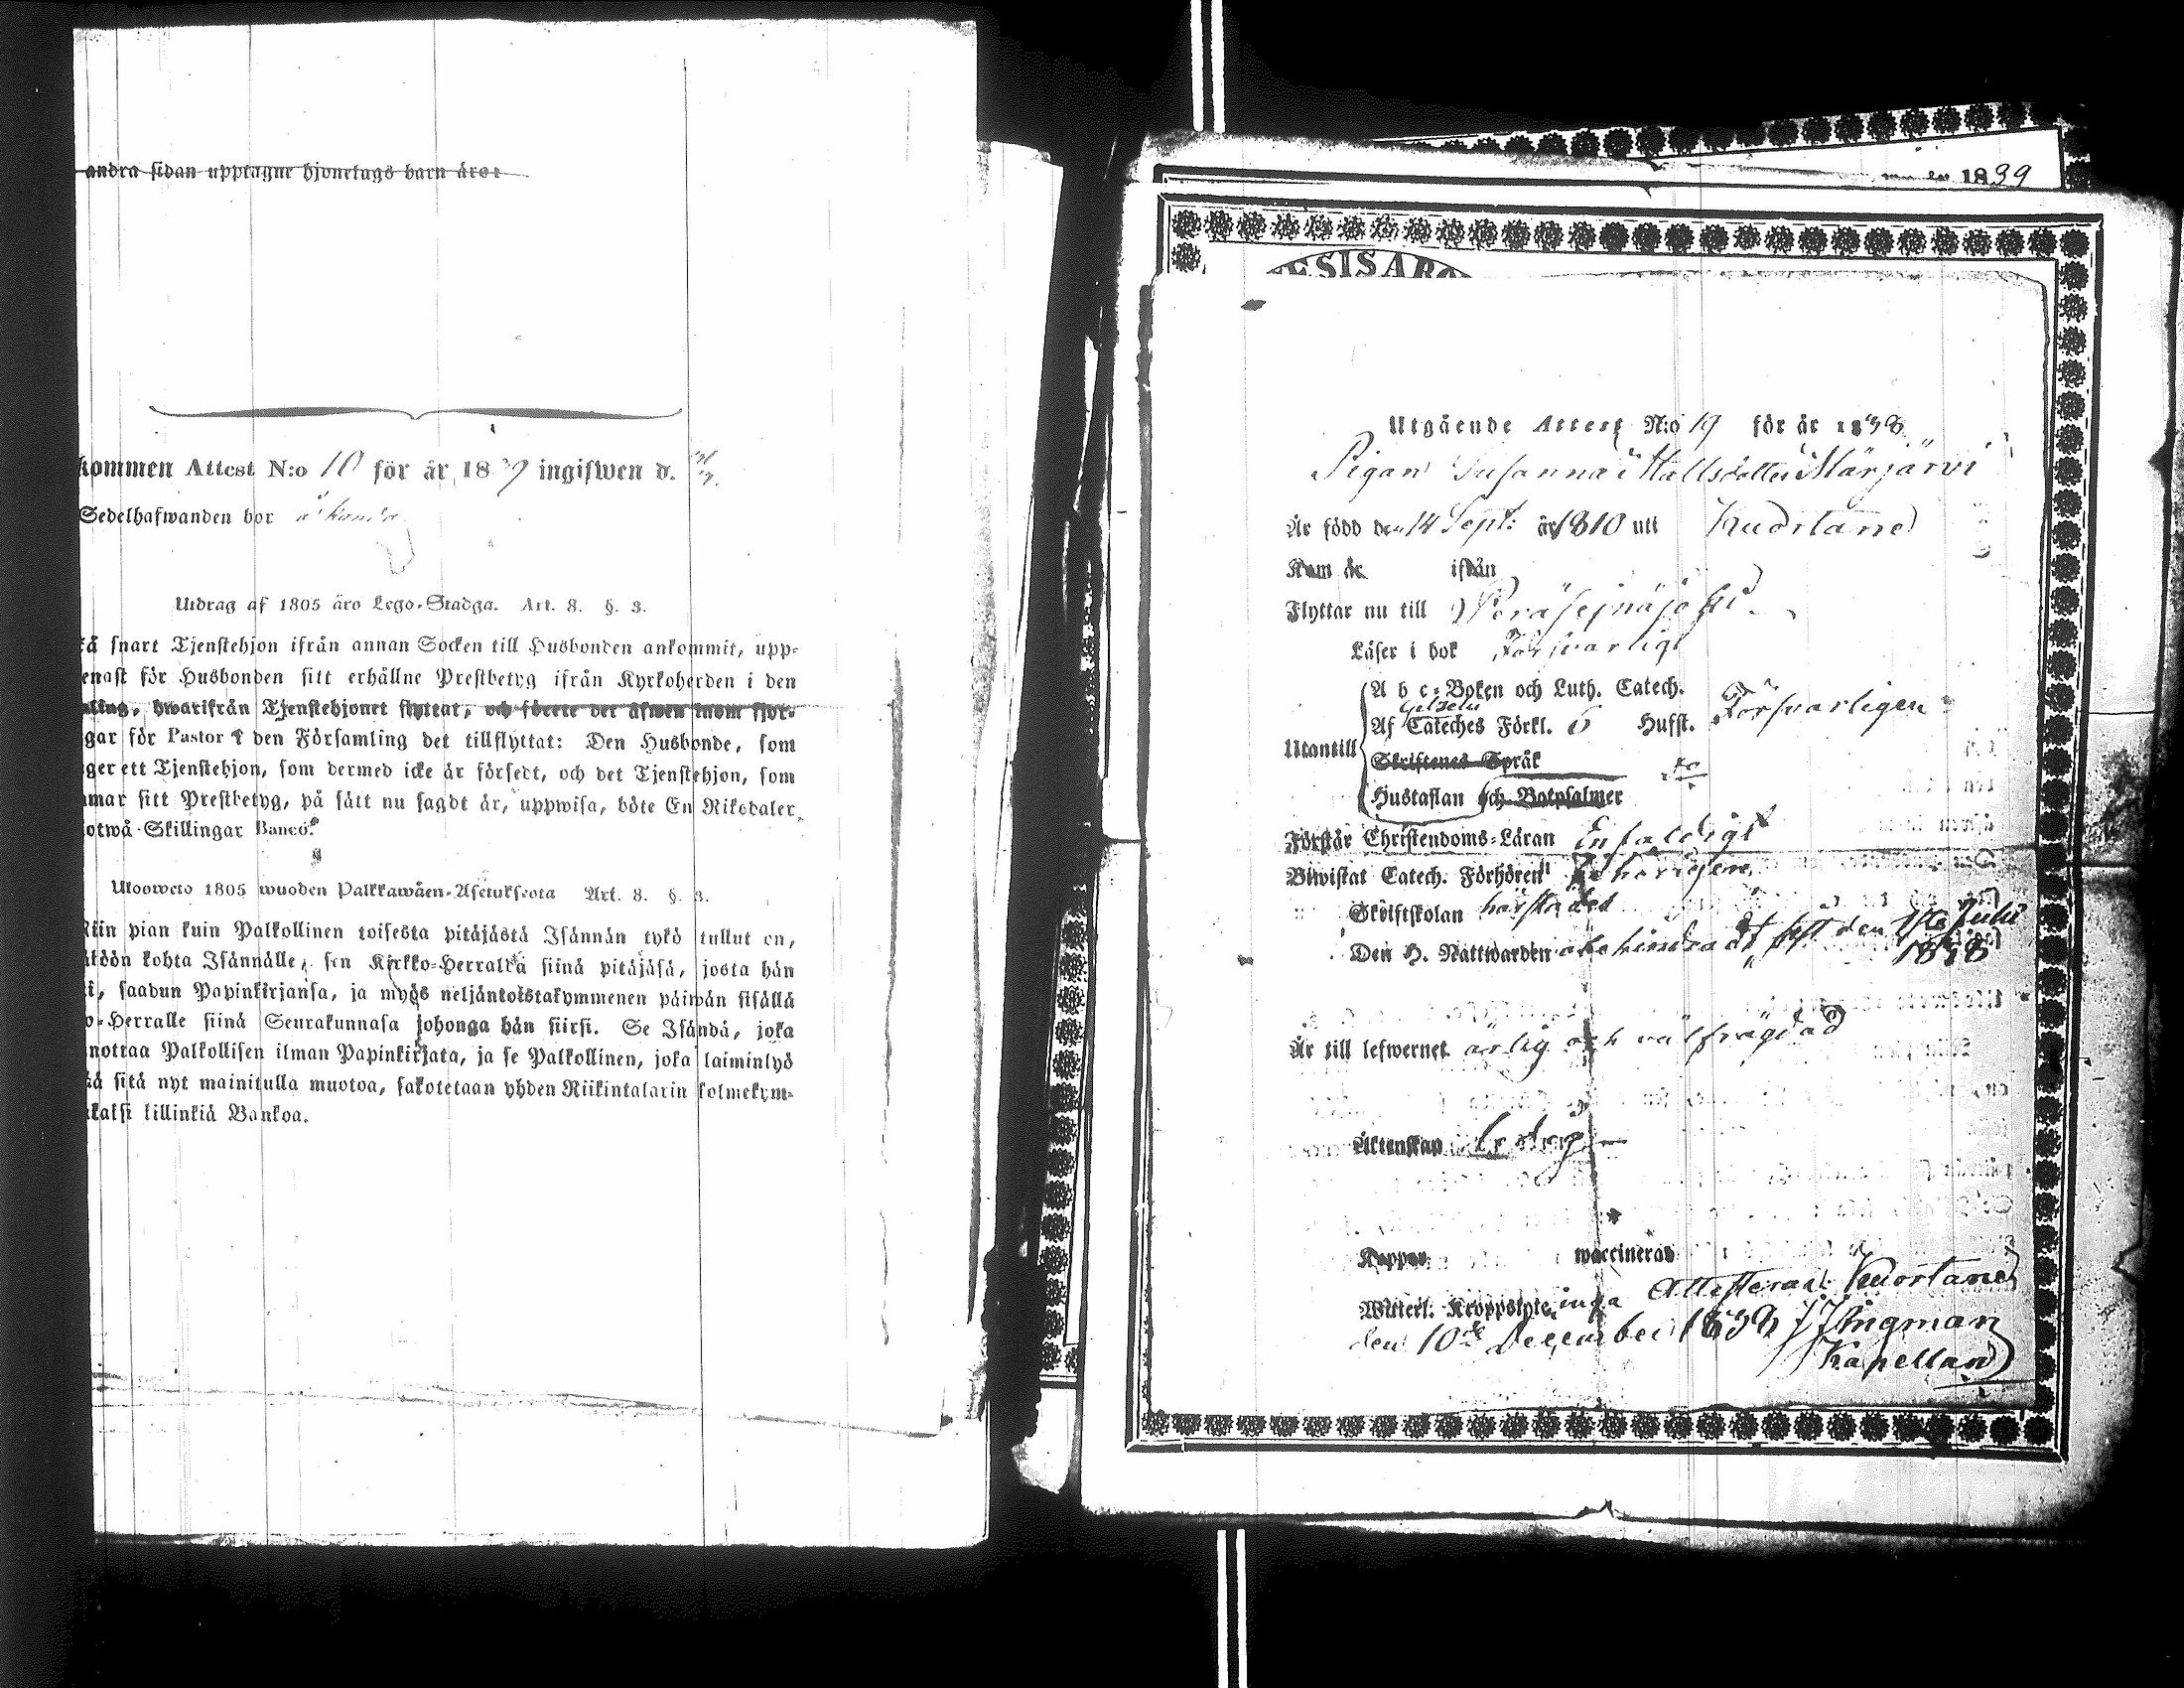 andra sidan upptagne hjonelags barn äro:
kommen Attest N:o 10 för år 1839 ingifwen d.
Sedelhafwanden bor
Utdrag af 1805 års Lego-Stadga. Art. 8. §. 3.
så snart Tjenstehjon ifrån annan Socken till Husbonden ankommit, upp-
enast för Husbonden sitt erhållne Prestbetyg ifrån Kyrkoherden i den
mling, hwarifrån Tjenstehjonet flyttat, och förete det äfwen inom fjor-
gar för Pastor i den Församling det tillflyttat: Den Husbonde, som
ger ett Tjenstehjon, som dermed icke är försedt, och det Tjenstehjon, som
mmar sitt Prestbetyg, på sätt nu sagdt är, uppwisa, böte En Riksdaler
otwå Skillingar Banco.
Ulosweto 1805 wuoden Palkkawäen-Asetuksesta Art. 8. §. 3.
Niin pian kuin Palkollinen toisesta pitäjästä Isännän tykö tullut on,
äköön kohta Isännälle, sen Kirkko-Herralta siinä pitäjäsä, josta hän
i, saadun Papinkirjansa, ja myös neljäntoistakymmenen päiwän sisällä
o-Herralle siinä Seurakunnasa johonga hän siirsi. Se Isändä, joka
nottaa Palkollisen ilman Papinkirjata, ja se Palkollinen, joka laiminlyö
ää sitä nyt mainitulla muotoa, sakotetaan yhden Riikintalarin kolmekym-
kaksi killinkiä Bankoa.
1839
ESISARO
Utgående Attest N:o 19 för år 1838
Pigan Susanna Mattsdotter Märjärvi
Är född den 14 Sept: år 1810 uti Kuortane
Kom år ifrån
Flyttar nu till Peräsejnäjoki
Läser i bok Försvarligt
Utantill
A b c-Boken och Luth. Catech.
Af Cateches Förkl. 6 Hufst. Försvarligen
Skriftenes Språk
Hustaflan och Botpsalmer
Förstår Christendoms-Läran Enfaldigt
Biwistat Catech. Förhören behörigen
Skriftskolan härstädes
Den H. Nattwarden obehindradt sist den 1ste Julii
1838
Är till lefwernet ärlig och välfrägdad
Äktenskap Ledig
Koppor waccinerad
Witterl. Kroppslyte inga Attesterad Kuortane
den 10de December 1838 Kingman
Kapellan